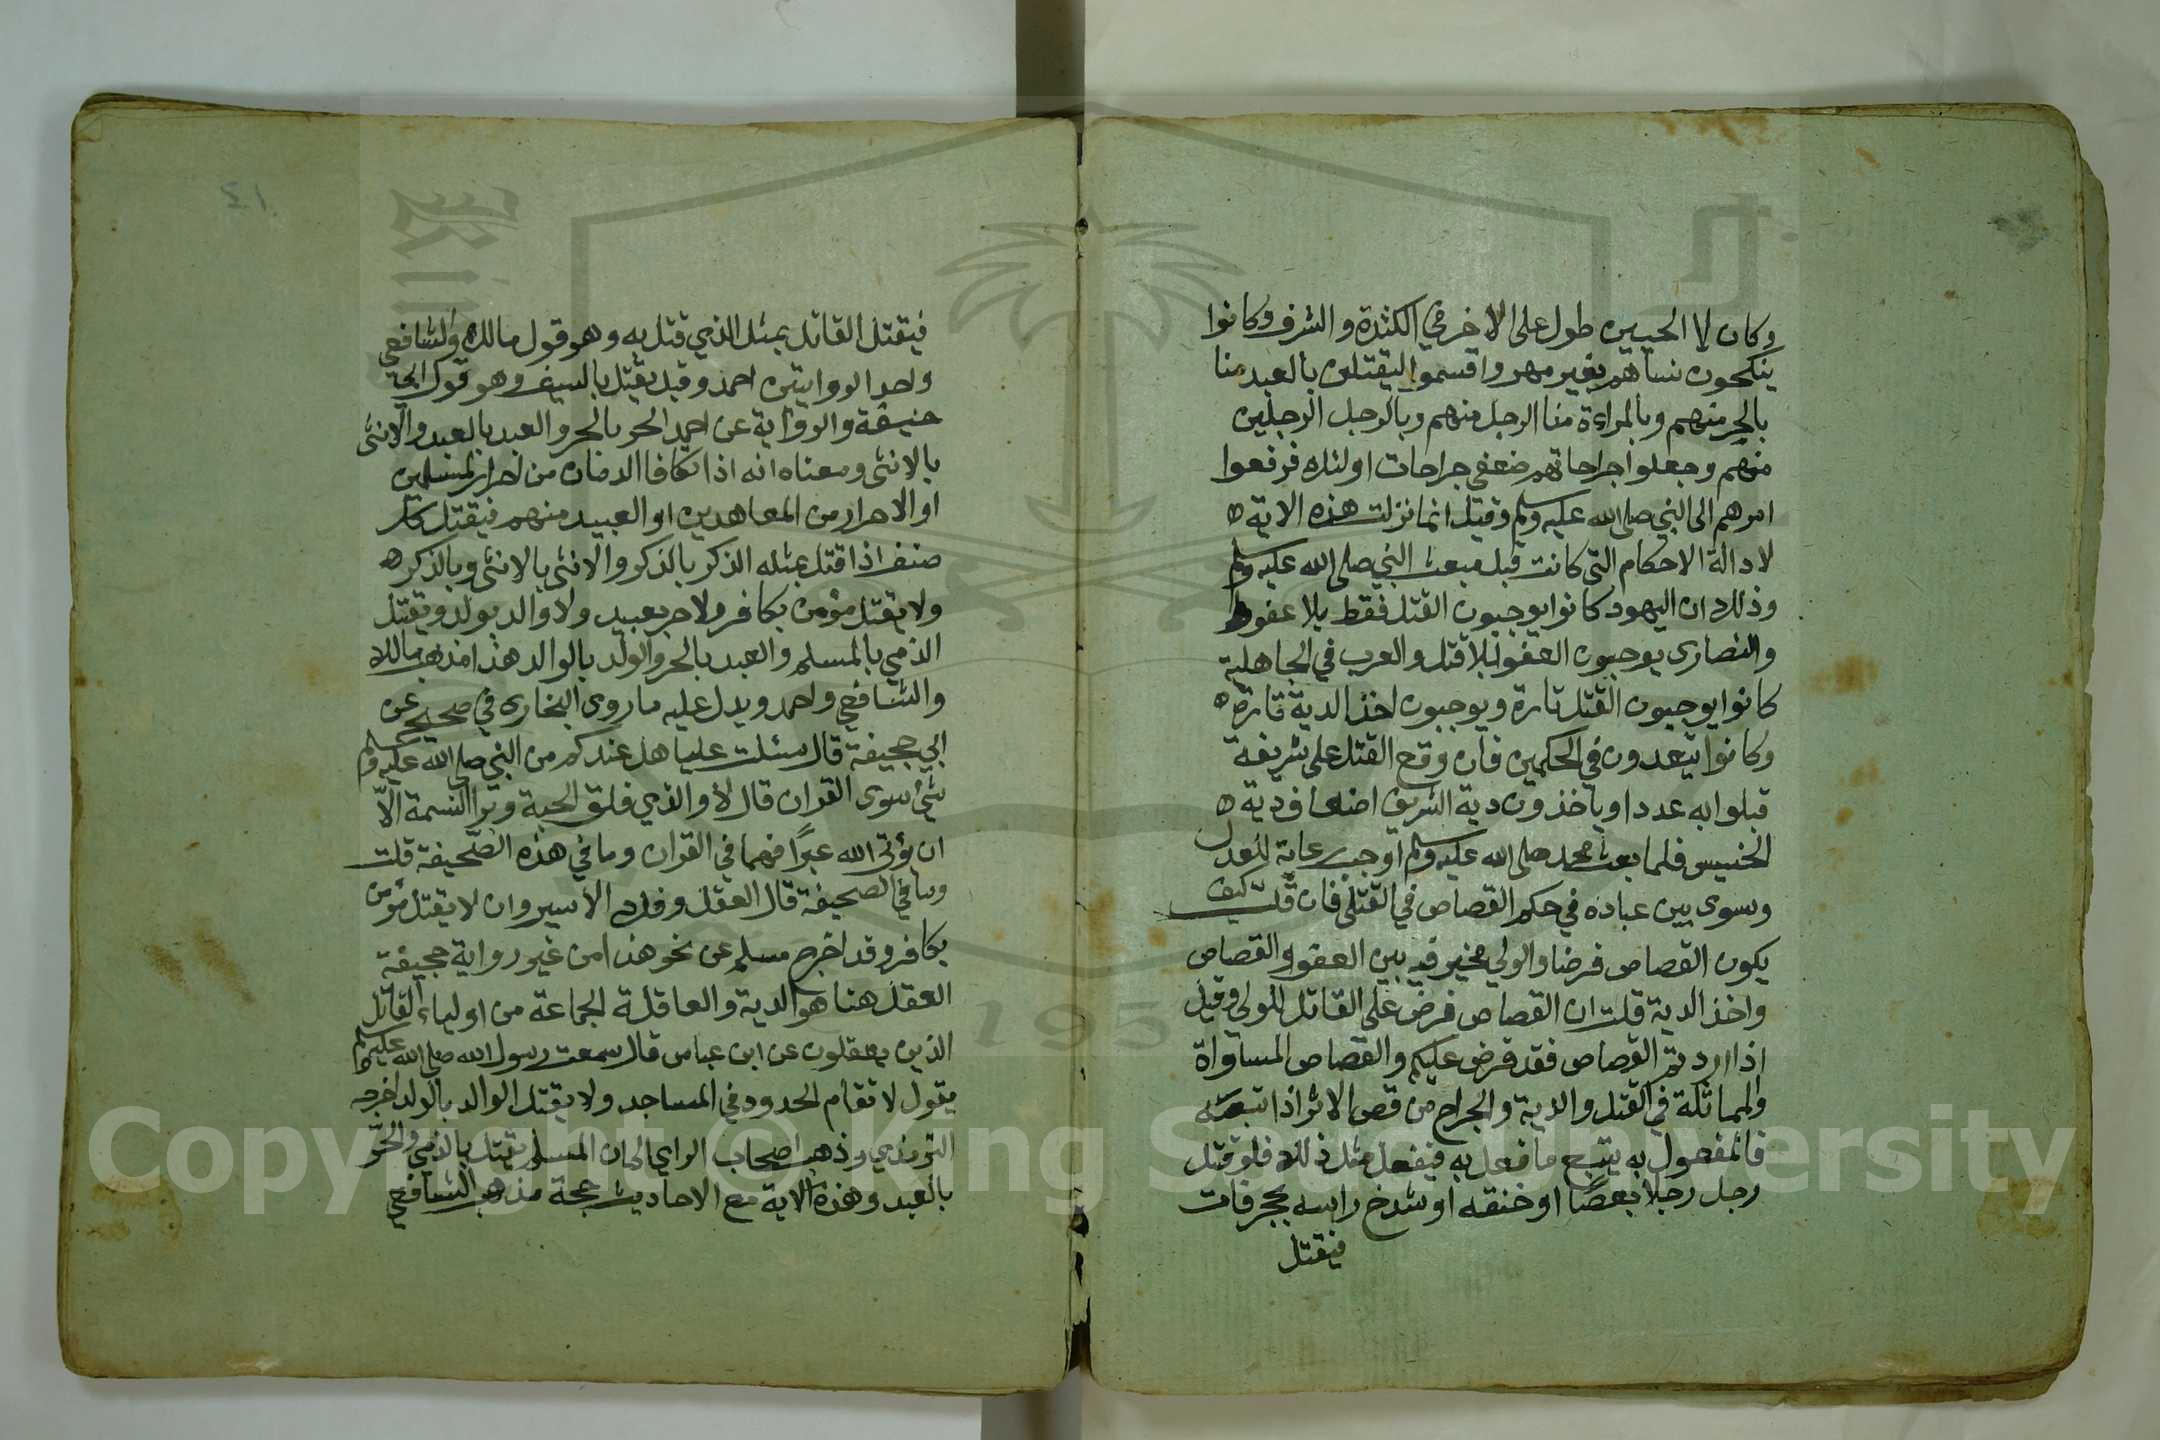 وكان لا الحيين طول على الاخر في الكثرة والشرف وكانوا
ينكحون نساهم بغير مهر واقسموا ليقتلن بالعبد منا
بالحر منهم وبالمراءة منا الرجل منهم وبالرجل الرجلين
منهم وجعلوا جراحاتهم ضعفي جراحات اولئك فرفعوا
امرهم الى النبي صلى الله عليه وسلم وقيل انما نزلت هذه الاية
لادالة الاحكام التي كانت قبل مبعث النبي صلى الله عليه وسلم
وذلك ان اليهود كانوا يوجبون القتل فقط بلا عفو
والنصارى يوجبون العفو بلا قتل والعرب في الجاهلية
كانوا يوجبون القتل تارة ويوجبون اخذ الدية تارة
وكانوا يتعدون في الحكمين فان وقع القتل على شريفة
قبلوا به عددا وياخذون دية الشريف اضعاف دية
الخسيس فلما بعث محمد صلى الله عليه وسلم اوجب رعاية للعدل
وسوى بين عباده في حكم القصاص في القتلى فان قلت كيف
يكون القصاص فرضا والولي مخير فيه بين العفو والقصاص
واخذ الدية قلت ان القصاص فرض على القاتل للولي وقيل
اذا اردتم القصاص فقد فرض عليكم والقصاص المساواة
والمماثلة في القتل والدية والجراح من قص الاثر اذا تبعه
فالمفعول به يتبع ما فعل به فيفعل مثل ذلك فلو قتل
رجل رجلا بعصا او خنقه او شدخ راسه بحجر فات
فيقتل
٤١
فيقتل القاتل بمثل الذي قتل به وهو قول مالك والشافعي
واحد الروايتين احمد وقيل يقتل بالسيف وهو قول ابي
حنيفة والرواية عن احمد الحر بالحر والعبد بالعبد والانثى
بالانثى ومعناه انه اذا تكافا الدمان من احرار المسلمين
او الاحرار من المعاهدين او العبيد منهم فيقتل كل
صنف اذا قتل بمثله الذكر بالذكر والانثى بالانثى وبالذكر
ولا يقتل مؤمن بكافر ولا حر بعبيد ولا والد بولد ويقتل
الذمي بالمسلم والعبد بالحر والولد بالوالد هذا مذهب مالك
والشافعي واحمد ويدل عليه ما روى البخارى في صحيح عن
ابي جحيفة قال سئلت عليا هل عندكم من النبي صلى الله عليه وسلم
شئ سوى القران قال لا والذي فلق الحبة وبرا النسمة الّا
ان يؤتى الله عبدًا فهما في القران وما في هذه الصّحيفة قلت
وما في الصحيفة قال العقل وفك الأسير وان لا يقتل مؤمن
بكافر وقد اخرج مسلم عن نحو هذا من غير رواية جحيفة
العقل هنا هو الدية والعاقلة الجماعة من اولياء القاتل
الذين يعقلون عن ابن عباس قال سمعت رسول الله صلى الله عليه وسلم
يقول لا تقام الحدود في المساجد ولا يقتل الوالد بالولد اخرجه
الترمذي وذهب اصحاب الراي الى ان المسلم يقتل بالذمي والحرّ
بالعبد وهذه الاية مع الاحاديث حجة مذهب الشافعي
Copyright © King Saud University
195